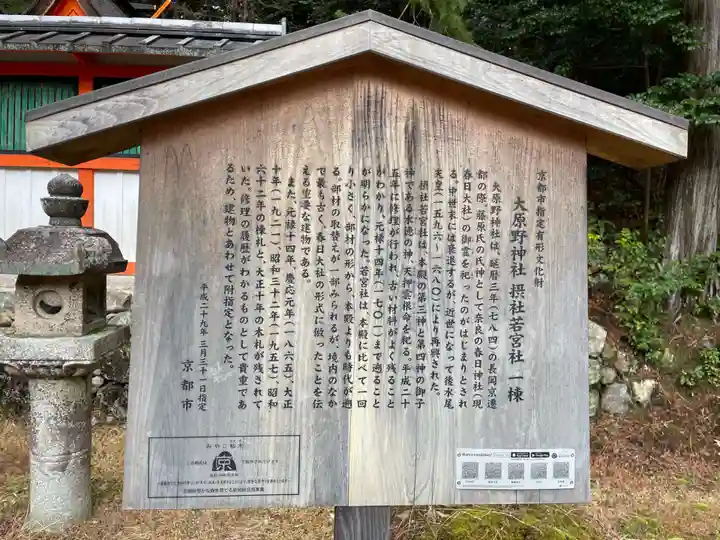 京都市指定有形文化財
大原野神社 摂社若宮社 一棟
大原野神社は、延暦三年(七八四)の長岡京遷
都の際、藤原氏の氏神として奈良の春日神社(現
春日大社)の御霊を祀ったのがはじまりとされ
る。中世末には衰退するが、近世になって後水尾
天皇(一五九六~一六八〇)により再興された。
摂社若宮社は、本殿の第三神と第四神の御子
神である水徳の神、天押雲根命を祀る。平成二十
五年に修理が行われ、古い材料がよく残ること
がわかり、元禄十四年(一七〇一)まで遡ること
が明らかになった。若宮社は、本殿に比べて一回
り小さく、部材の形から、本殿よりも時代が遡
る。部材の取替えが一部みられるが、境内のなか
で最も古く、春日大社の形式に倣ったことを伝
える貴重な建物である。
また、元禄十四年、慶応元年(一八六五)、大正
十年(一九二一)、昭和三十二年(一九五七)、昭和
六十二年の棟札と、大正十年の木札が残されて
いた。修理の履歴がわかるものとして貴重であ
るため、建物とあわせて附指定となった。
平成二十九年 三月三十一日指定
京都市
みやこ杣木